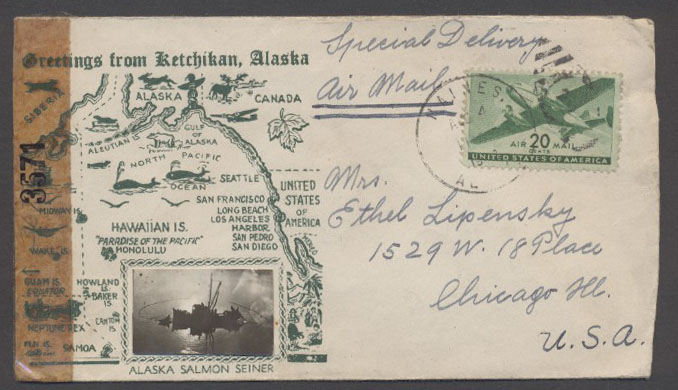 Greetings from Ketchikan, Alaska
Special Delivery
Air Mail
3571
SIBERIA
ALASKA
CANADA
ALEUTIAN IS.
GULF
OF
ALASKA
NORTH PACIFIC
OCEAN
SEATTLE
SAN FRANCISCO
LONG BEACH
LOS ANGELES
HARBOR
SAN PEDRO
SAN DIEGO
UNITED
STATES
OF
AMERICA
MIDWAY IS.
HAWAIIAN IS.
"PARADISE OF THE PACIFIC"
HONOLULU
WAKE IS.
GUAM IS.
EQUATOR
HOWLAND
IS.
BAKER
IS.
NEPTUNE REX
CANTON
IS.
FIJI IS.
SAMOA
ALASKA SALMON SEINER
HAINES
AIR 20 MAIL
CENTS
UNITED STATES OF AMERICA
Mrs.
Ethel Lipensky
1529 W. 18 Place
Chicago Ill.
U.S.A.